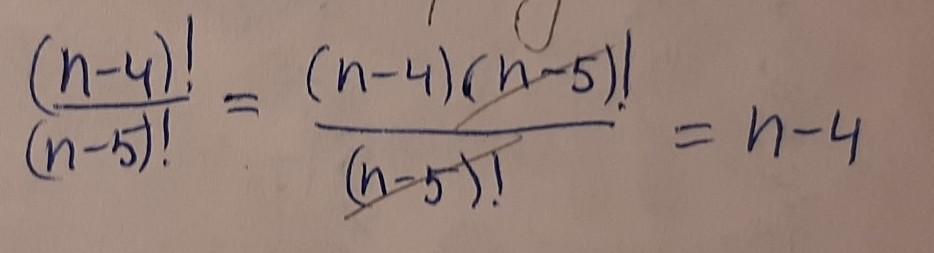 (n-4)!/(n-5)! = (n-4)(n-5)!/(n-5)! = n-4